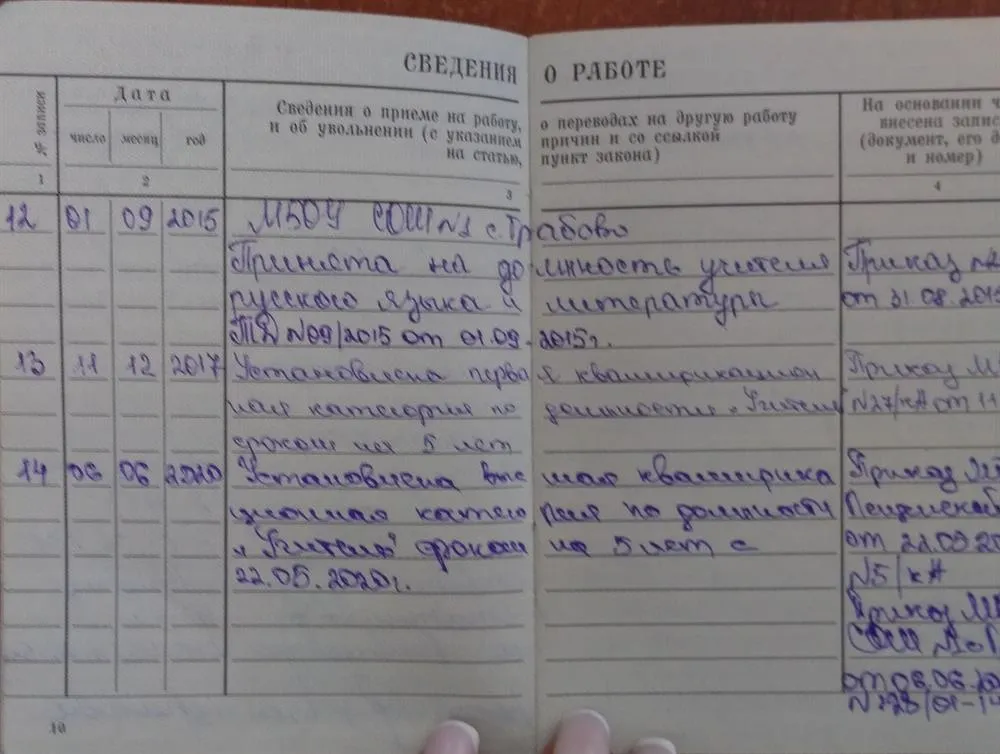 СВЕДЕНИЯ О РАБОТЕ
№ записи
Дата
число месяц год
Сведения о приеме на работу, о переводах на другую работу
и об увольнении (с указанием причин и со ссылкой
на статью, пункт закона)
На основании ч
внесена запис
(документ, его д
и номер)
1 2 3 4
12 01 09 2015 МБОУ СОШ №1 с. Грабово
Принята на должность учителя Приказ №2
русского языка и литературы от 31.08.201
ТД №09/2015 от 01.09.2015г.
13 11 12 2017 Установлена первая квалификацион Приказ М
ная категория по должности «Учитель №27/кА от 11
сроком на 5 лет
14 06 06 2020 Установлена высшая квалифика Приказ М
ционная категория по должности Пензенской
«Учитель" сроком на 5 лет с от 22.05.20
22.05.2020г. №5/кА
Приказ М
СОШ №1
от 06.06.20
№ 223/01-1
10